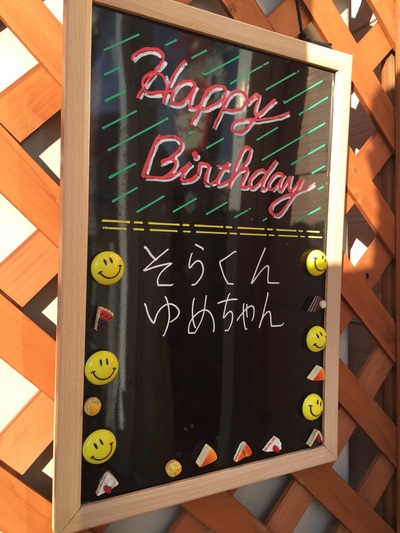 Happy
Birthday
そらくん
ゆめちゃん